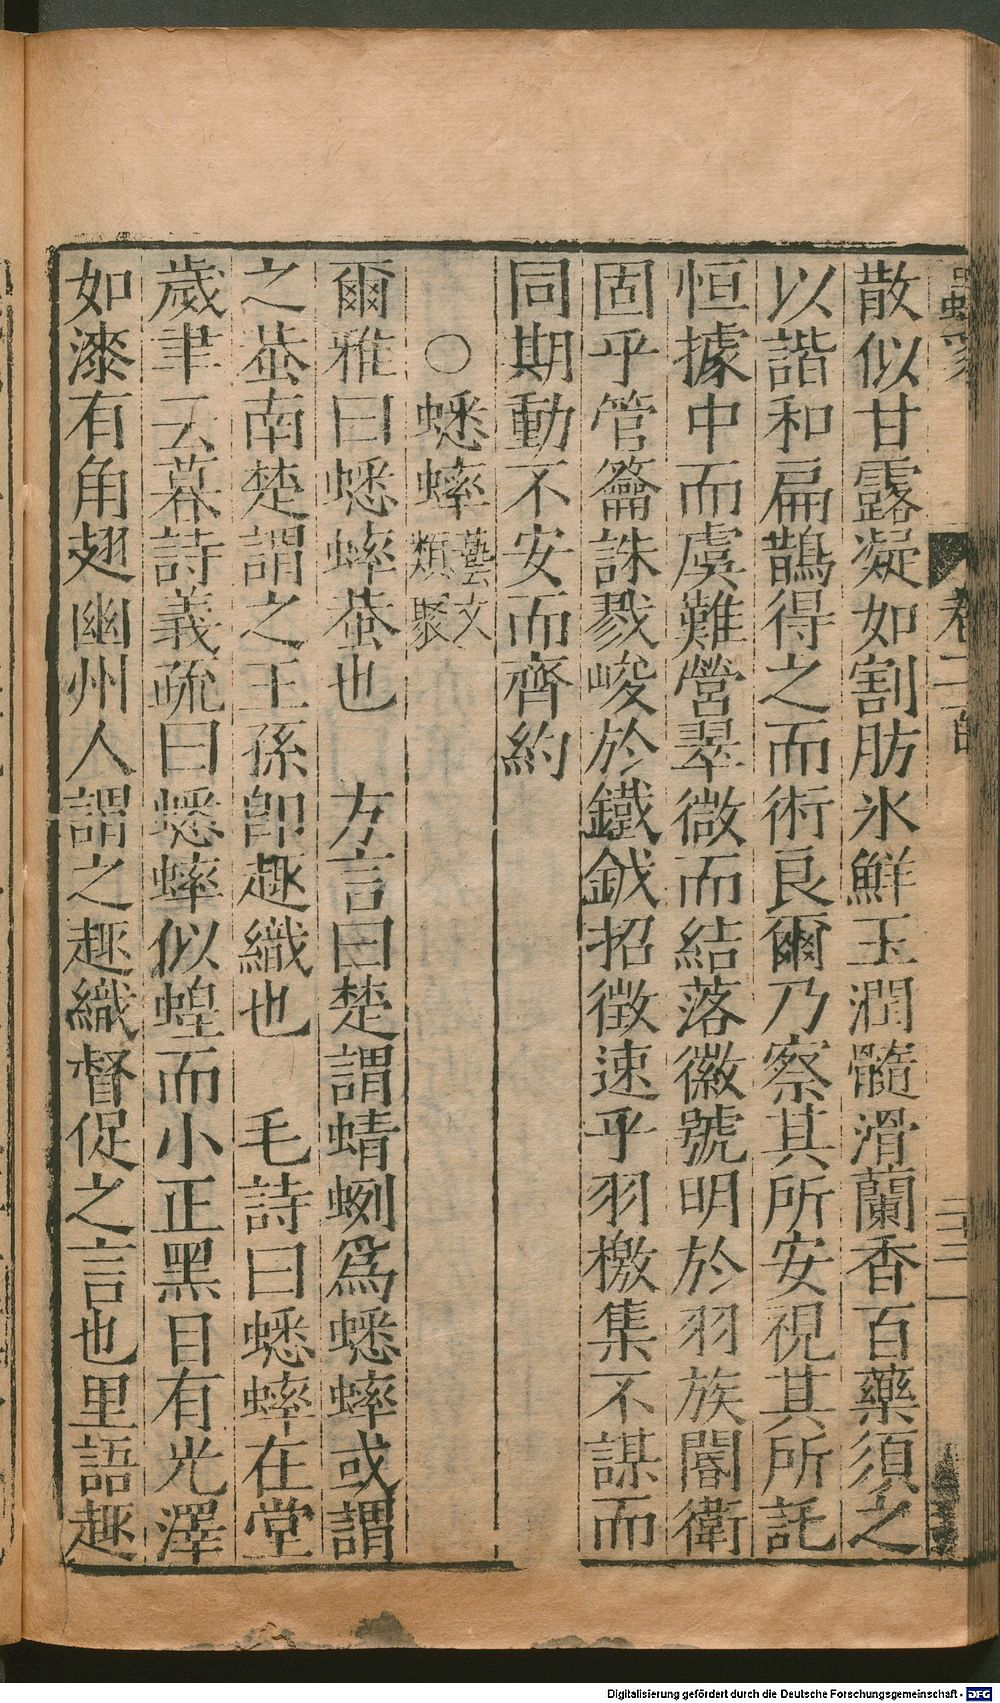 散似甘露凝如割肪氷鮮玉潤髓滑蘭香百藥須之
以諧和扁鵲得之而術良爾乃察其所安視其所託
恒據中而虞難營翠微而結落徽號明於羽族閽衛
固乎管籥誅戮峻於鐵鉞招徵速乎羽檄集不謀而
同期動不安而齊約
○蟋蟀藝文類聚
爾雅曰蟋蟀蛬也　方言曰楚謂蜻蛚爲蟋蟀或謂
之蛬南楚謂之王孫卽趣織也　毛詩曰蟋蟀在堂
歲聿云暮詩義疏曰蟋蟀似蝗而小正黑目有光澤
如漆有角翅幽州人謂之趣織督促之言也里語趣
Digitalisierung gefördert durch die Deutsche Forschungsgemeinschaft - DFG